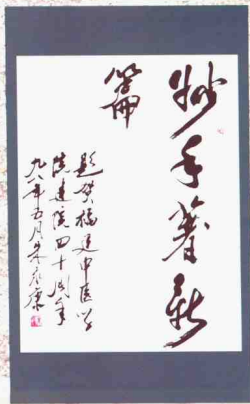 妙手著新
篇
题贺福建中医学
院建院四十周年
九八年五月